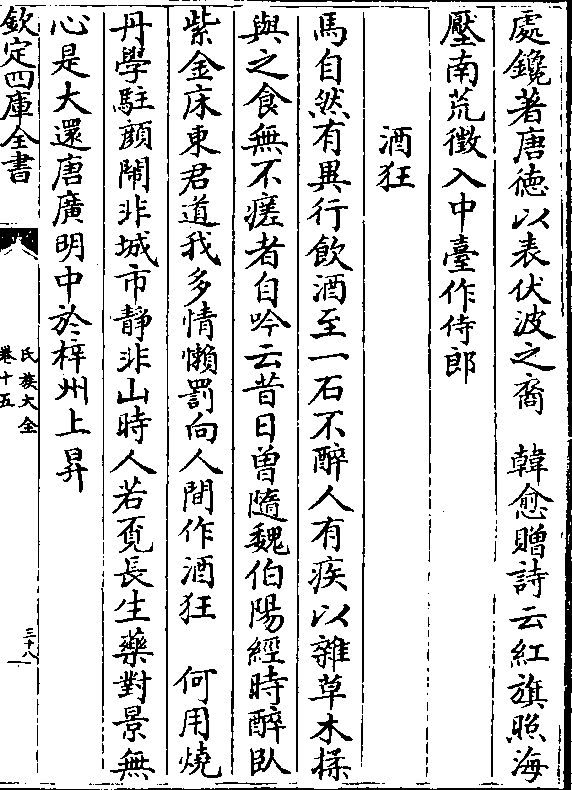 處鑱著唐德以表伏波之裔　韓愈贈詩云紅旗照海
壓南荒徴入中臺作侍郎
酒狂
馬自然有異行飲酒至一石不醉人有疾以雜草木揉
與之食無不瘥者自吟云昔日曽隨魏伯陽經時醉臥
紫金床東君道我多情懶罰向人間作酒狂　何用燒
丹學駐顔鬧非城市静非山時人若覔長生藥對景無
心是大還唐廣明中於梓州上昇
欽定四庫全書
氏族大全
卷十五
三十八